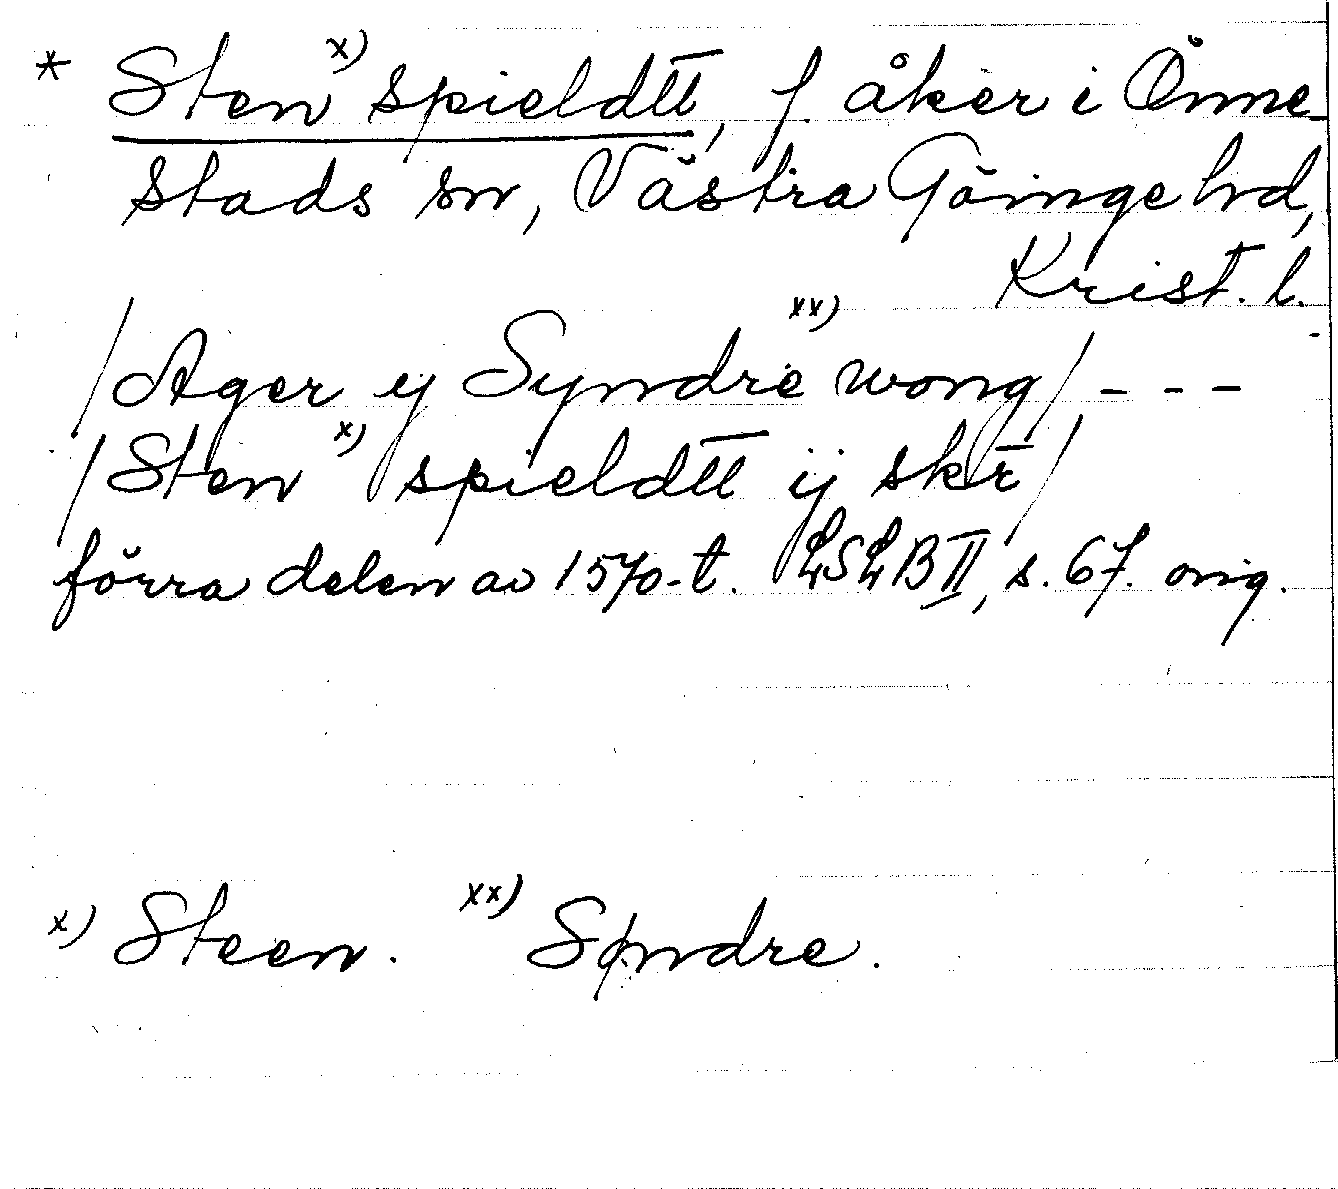 * Sten x) spieldtt, f. åker i Önne-
stads sn, Västra Göinge hd,
Krist. l.
/Ager ij Syndre xx) wong/ - - -
/Sten x) spieldtt ij skr̄/
förra delen av 1570-t. LSLB II, s. 67. orig.
x) Steen. xx) Søndre.